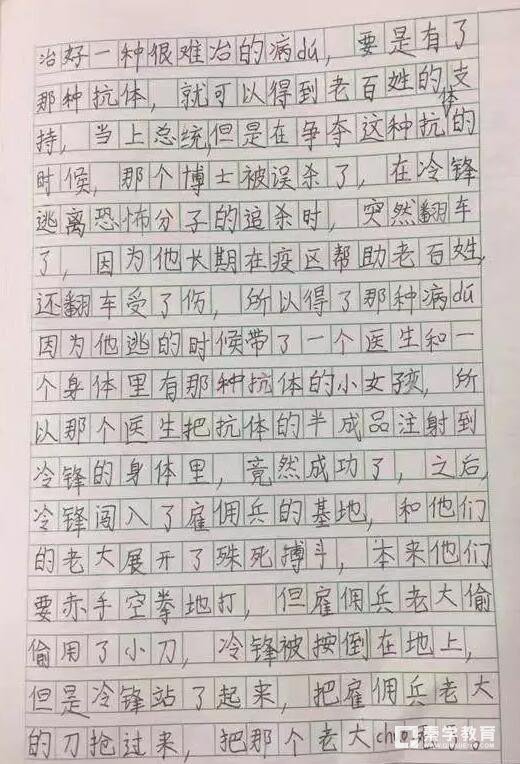 治好一种很难治的病dú，要是有了
那种抗体，就可以得到老百姓的支
持，当上总统，但是在争夺这种抗体的
时候，那个博士被误杀了，在冷锋
逃离恐怖分子的追杀时，突然翻车
了，因为他长期在疫区帮助老百姓，
还翻车受了伤，所以得了那种病dú
因为他逃的时候带了一个医生和一
个身体里有那种抗体的小女孩，所
以那个医生把抗体的半成品注射到
冷锋的身体里，竟然成功了，之后，
冷锋闯入了雇佣兵的基地，和他们
的老大展开了殊死搏斗，本来他们
要赤手空拳地打，但雇佣兵老大偷
偷用了小刀，冷锋被按倒在地上，
但是冷锋站了起来，把雇佣兵老大
的刀抢过来，把那个老大
秦学教育